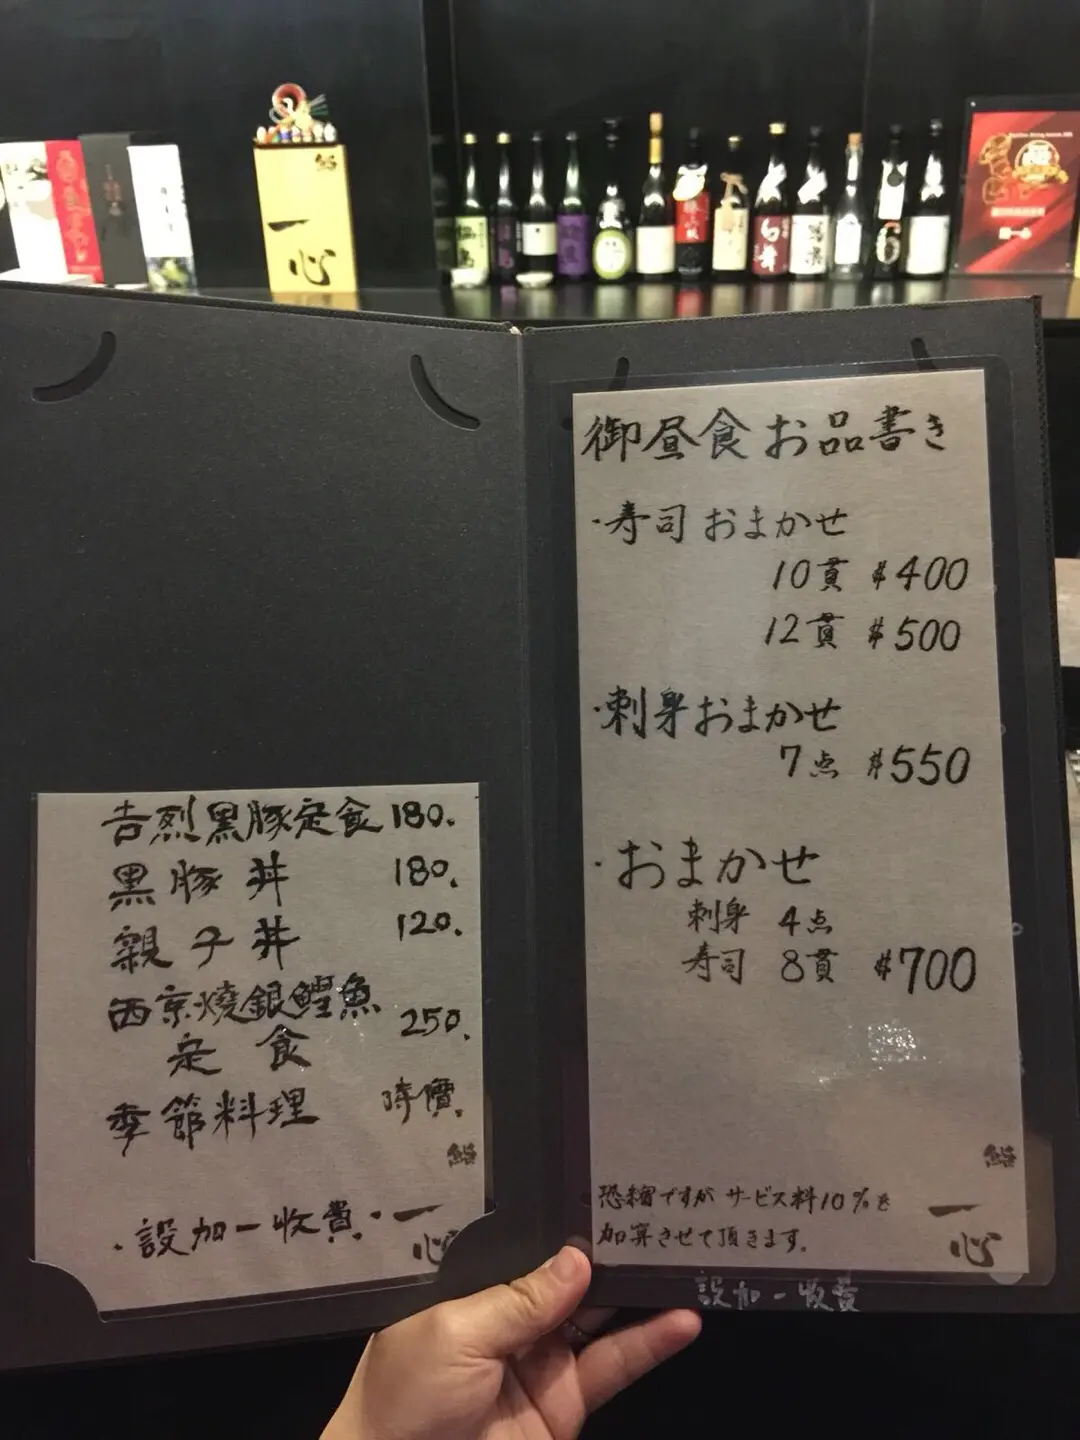 鮨
一
心
告烈黒豚定食 180.
黒豚丼 180.
親子丼 120.
西京燒銀鱈魚
定食 250.
季節料理 時價.
・設加一收費・
鮨
一
心
御昼食お品書き
・寿司おまかせ
10貫 $400
12貫 $500
・刺身おまかせ
7点 $550
・おまかせ
刺身 4点
寿司 8貫 $700
恐縮ですが サービス料10%を
加算させて頂きます。
鮨
一
心
設加一收費